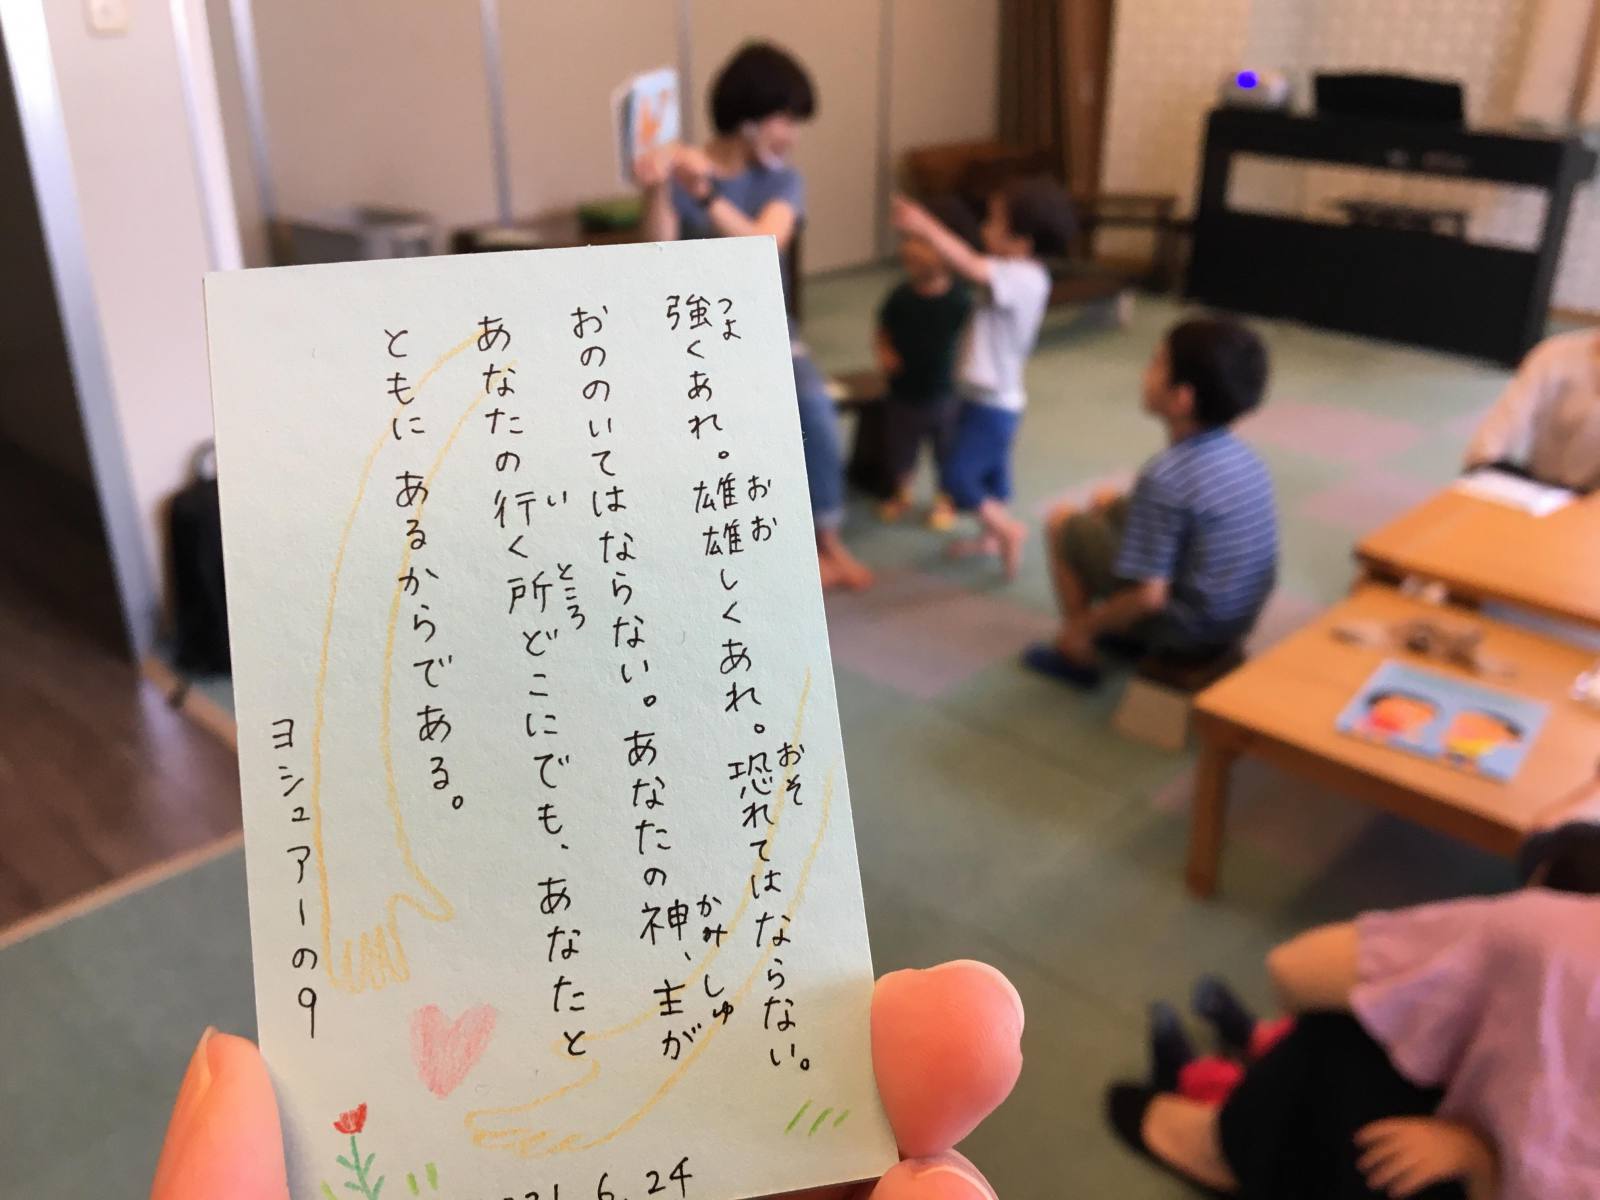 強くあれ。雄雄しくあれ。恐れてはならない。
つよ おお おそ
おののいてはならない。あなたの神、主が
かみ しゅ
あなたの行く所どこにでも、あなたと
い ところ
ともに あるからである。
ヨシュアーの9
21. 6. 24